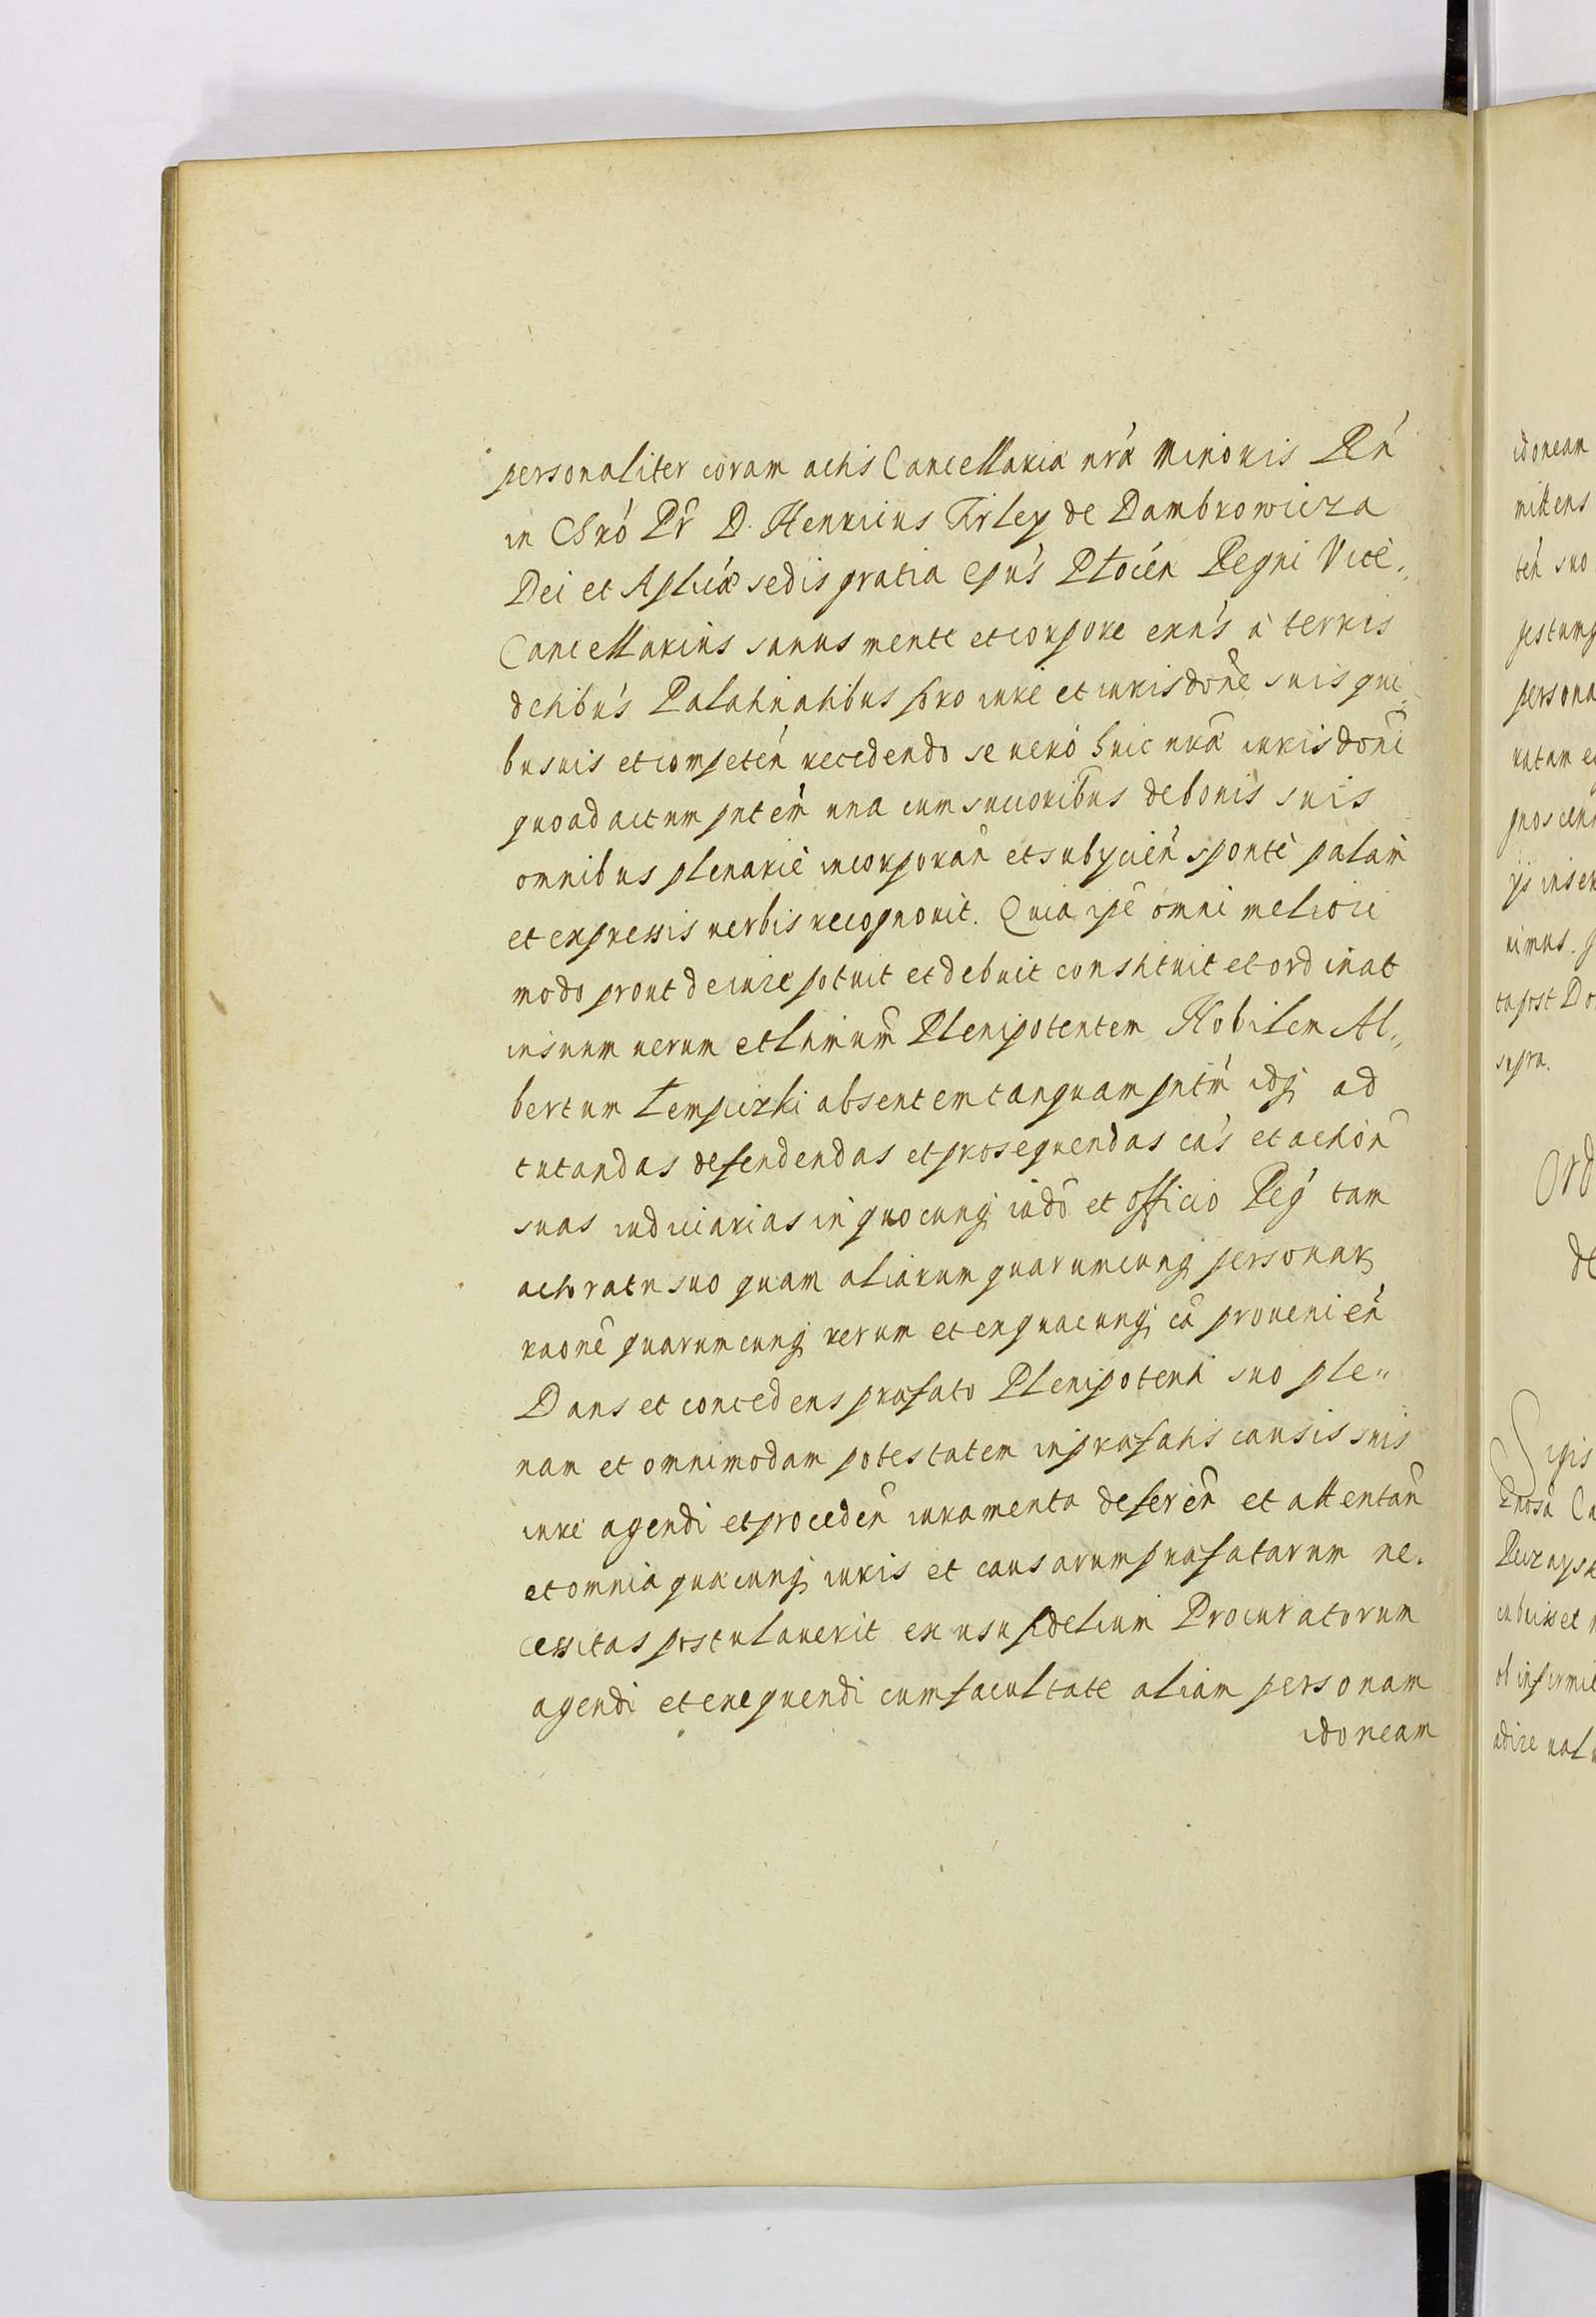 personaliter coram actis Cancellariæ nrǽ Minoris Rń
in Chró Pr̃ D. Henricus Firley de Dambrowicza
Dei et Aplicǽ sedis gratia Epús Płocén Regni Vicè,,
Cancellarius sanus mente et corpore exńs à terris
dctibús Palatinatibus foro iure et iurisdoñe suis qui,,
busuis et competén recedendo se veró huic nrǽ iurisdoñi
quoad actum pntem̃ una cum succoribus de bonis suis
omnibus plenariè incorporań et subyciéń spontè palàm
et expressis verbis recognovit. Quia ipẽ omni meliori
modo prout de iure potuit et debuit constituit et ordinat
in suum verum et ltimum̃ Plenipotentem Nobilem Al,,
bertum Łempizki absentem tanquam pntm̃ idq́ ad
tutandas defendendas et prosequendas cás et actioñ
suas iudiciarias in quocunq́ iudõ et officio Reǵ tam
actoratu suo quam aliarum quarumcunq́ personar̨
raoñe quarumcunq́ rerum et ex quacunq́ cã provenień
Dans et concedens præfato Plenipotenti suo ple,,
nam et omnimodam potestatem in præfatis causis suis
iure agendi et procedeñ iuramenta defereñ et attentañ
et omnia quæcunq́ iuris et causarum præfatarum ne,
cessitas postulaverit ex usu fidelium Procuratorum
agendi et exequendi cum facultate aliam personam
idoneam
idoneam
mittens
teń suo
gestumq
persona
ratam e
ijs inser
nimus. 
ta post Do
supra.
Ord
de
Sigis
ob infirmi